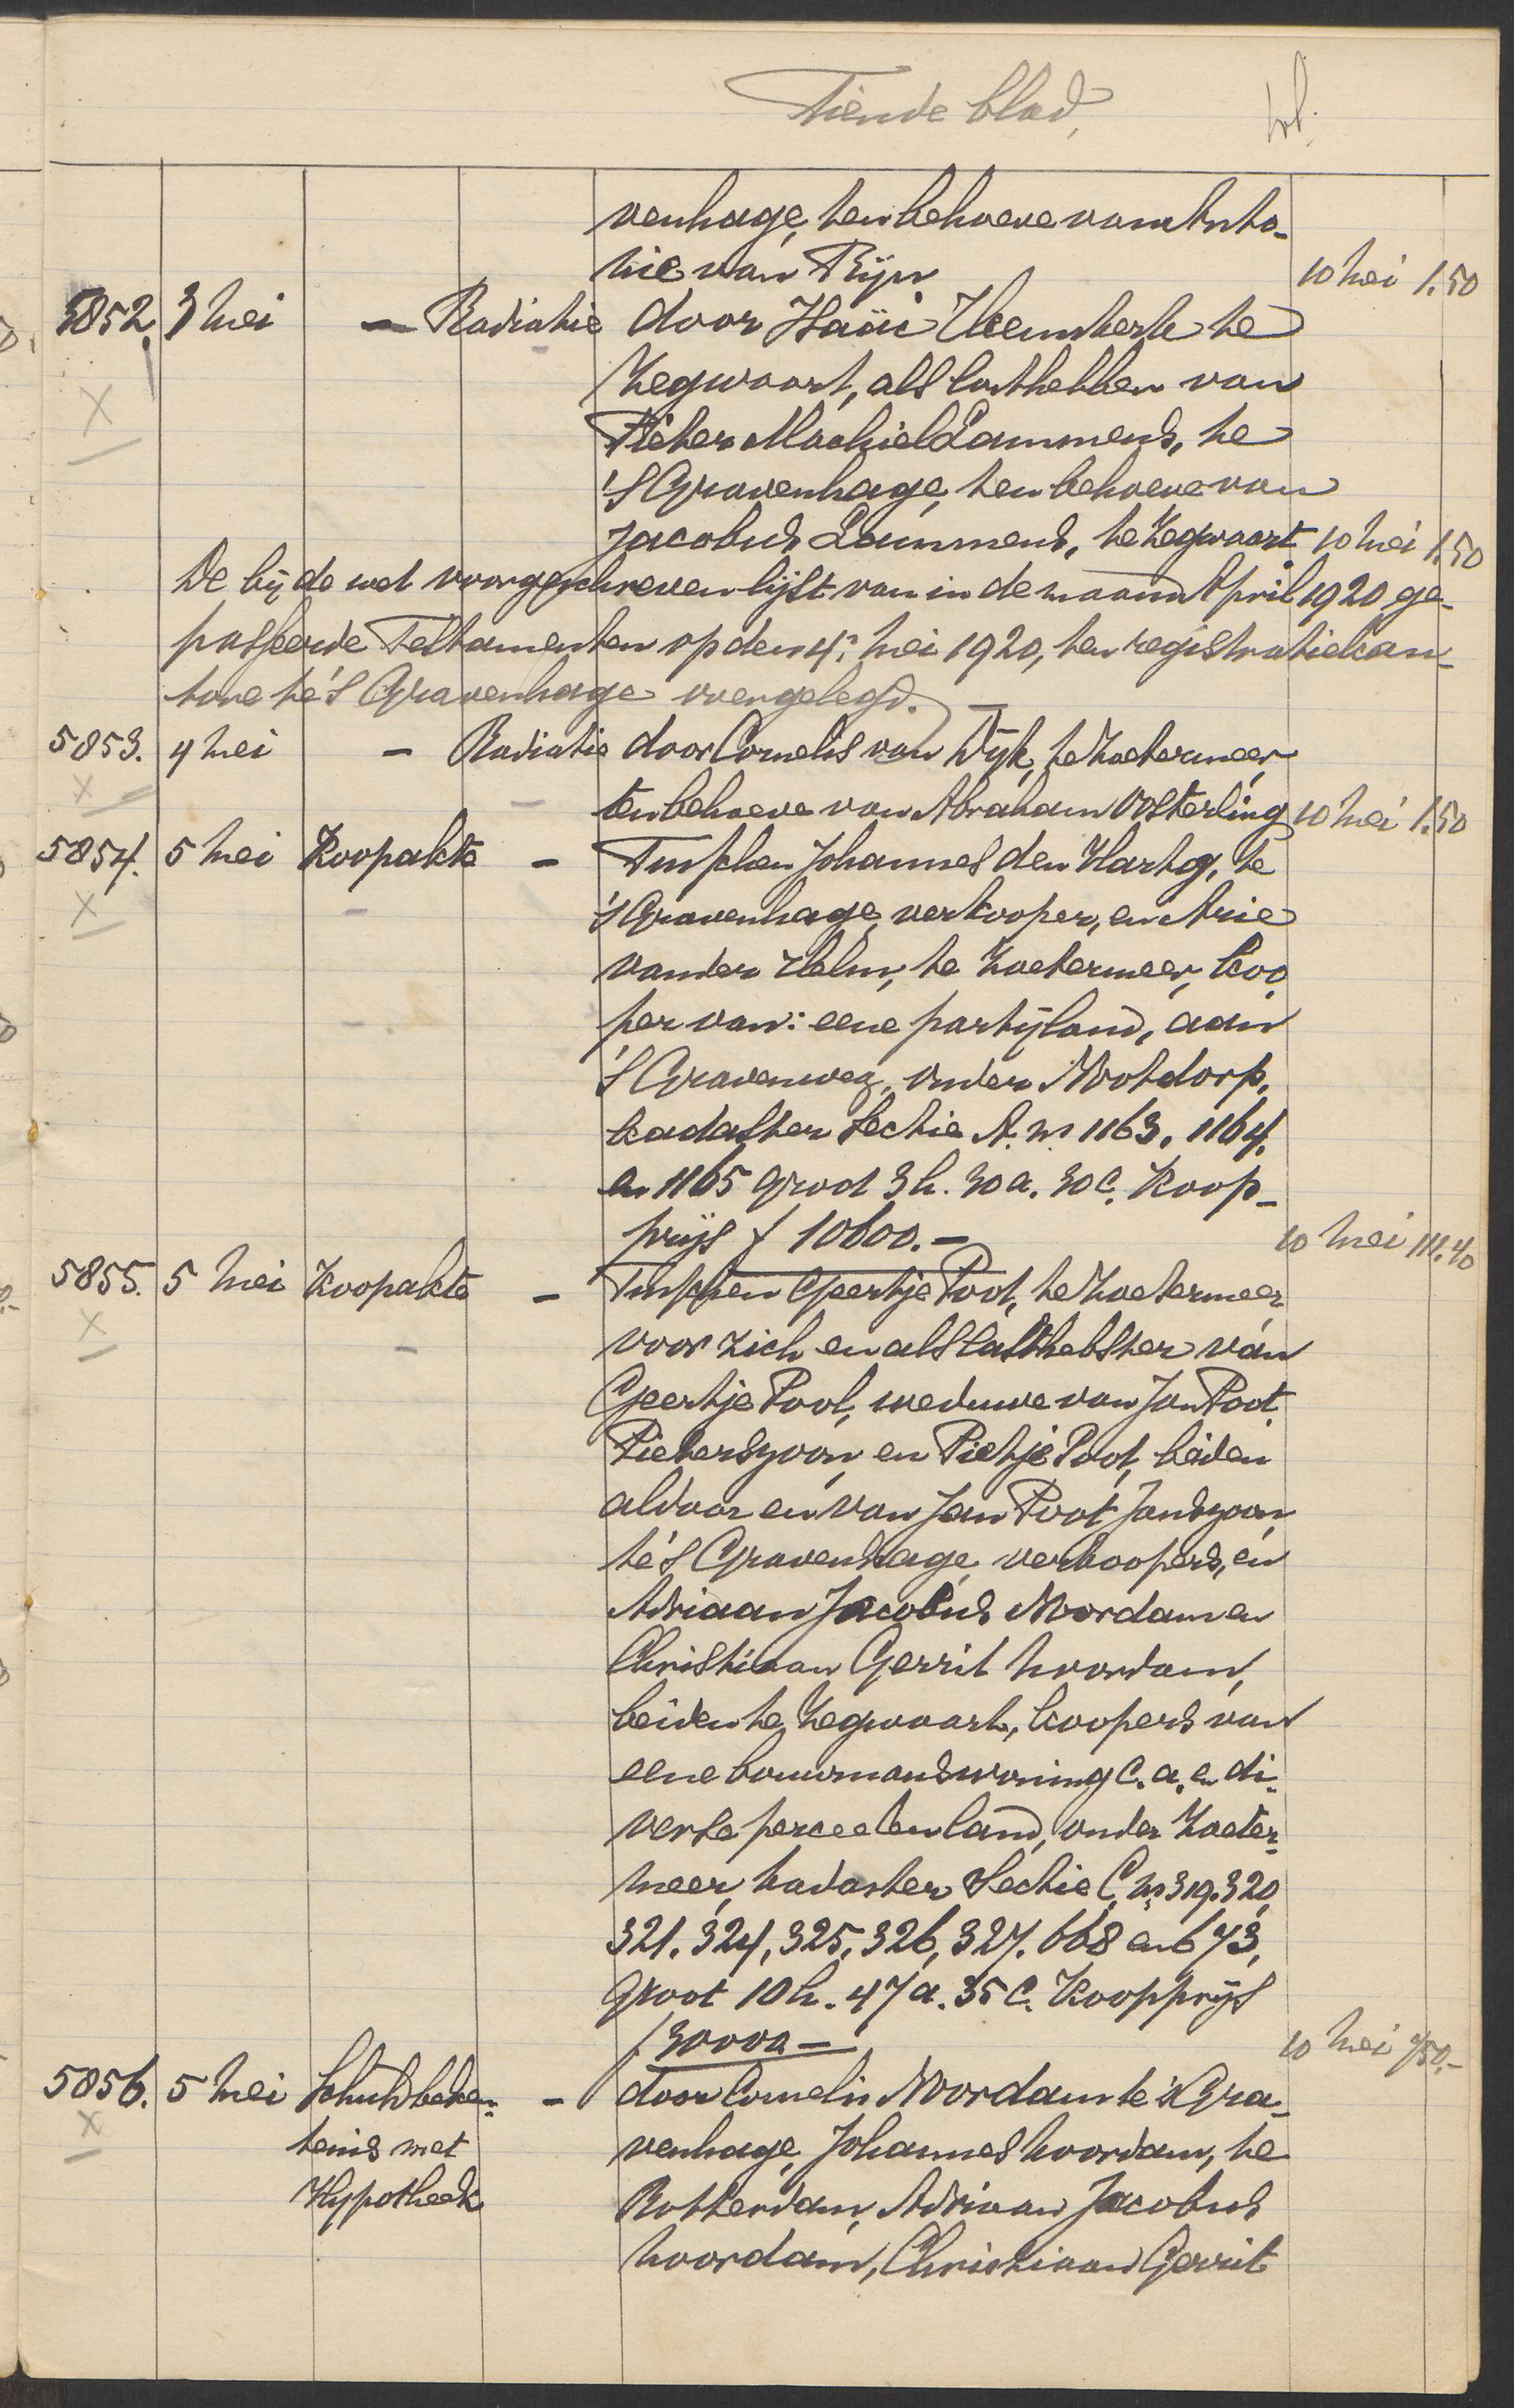 Tiende blad,
venhage, ten behoeve van Anto-
nie van Rijn 10 Mei 1.50
5852. 3 Mei — Radiatie door Haije Veemsterk te
Zegwaart, als lasthebber van
Pieter Machiel Lammens, te
'S Gravenhage, ten behoeve van
Jacobus Lammens, te Zegwaart 10 Mei 1.50
De bij de wet voorgeschreven lijst van in de maand April 1920 ge-
passeerde Testamenten op den 4n Mei 1920, ten registratiekan-
tore te 's Gravenhage overgelegd. —
5853. 4 Mei — Radiatie door Cornelis van Wijk, te Zoetermeer,
ten behoeve van Abraham Oosterling 10 Mei 1.50
5854. 5 Mei Koopakte — Tusschen Johannes den Hartog, te
'S Gravenhage, verkooper, en Arie
van der Helm, te Zoetermeer, koo-
per van: eene partij land, aan
'S Gravenweg, onder Nootdorp,
kadaster Sectie A. ns 1163, 1164,
en 1165 groot 3 h. 30 a. 30 c. Koop-
prijs f 10600.— 10 Mei 111.40
5855. 5 Mei Koopakte — Tusschen Geertje Poot, te Zoetermeer
voor zich en als lasthebster van
Geertje Pool, weduwe van Jan Poot
Pieterszoon, en Pietje Poot, beiden
aldaar en van Jan Poot Janszoon
te 'S Gravenhage, verkoopers, en
Adriaan Jacobus Noordam en
Christiaan Gerrit Noordam,
beiden te Zegwaart, koopers van
eene bouwmanswoning c.a. en di-
verse perceelen land, onder Zoeter-
meer, kadaster Sectie C. ns 319, 320,
321, 324, 325, 326, 327, 668 en 673,
groot 10 h. 47 a. 35 c. Koopprijs
f 30000.— 10 Mei 750.—
5856. 5 Mei Schuldbeken- — door Cornelis Noordam te 's Gra-
tenis met venhage, Johannes Noordam, te
Hypotheek Rotterdam, Adriaan Jacobus
Noordam, Christiaan Gerrit